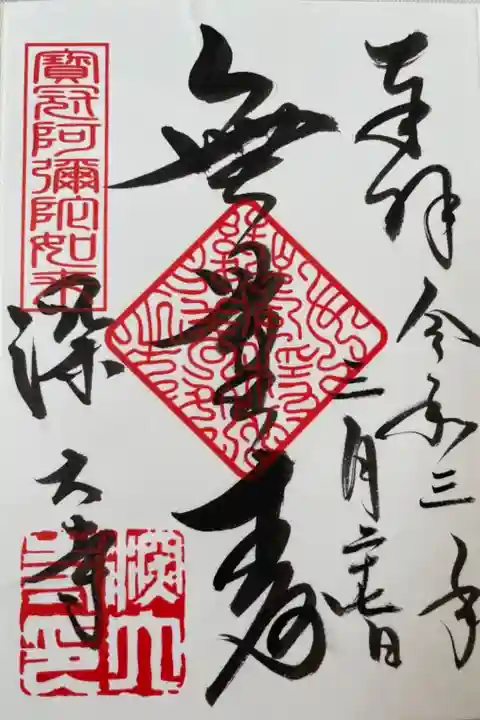 奉拝 令和三年
三月二十七日
無量寿
寶冠阿彌陀如来
深大寺
深大寺印